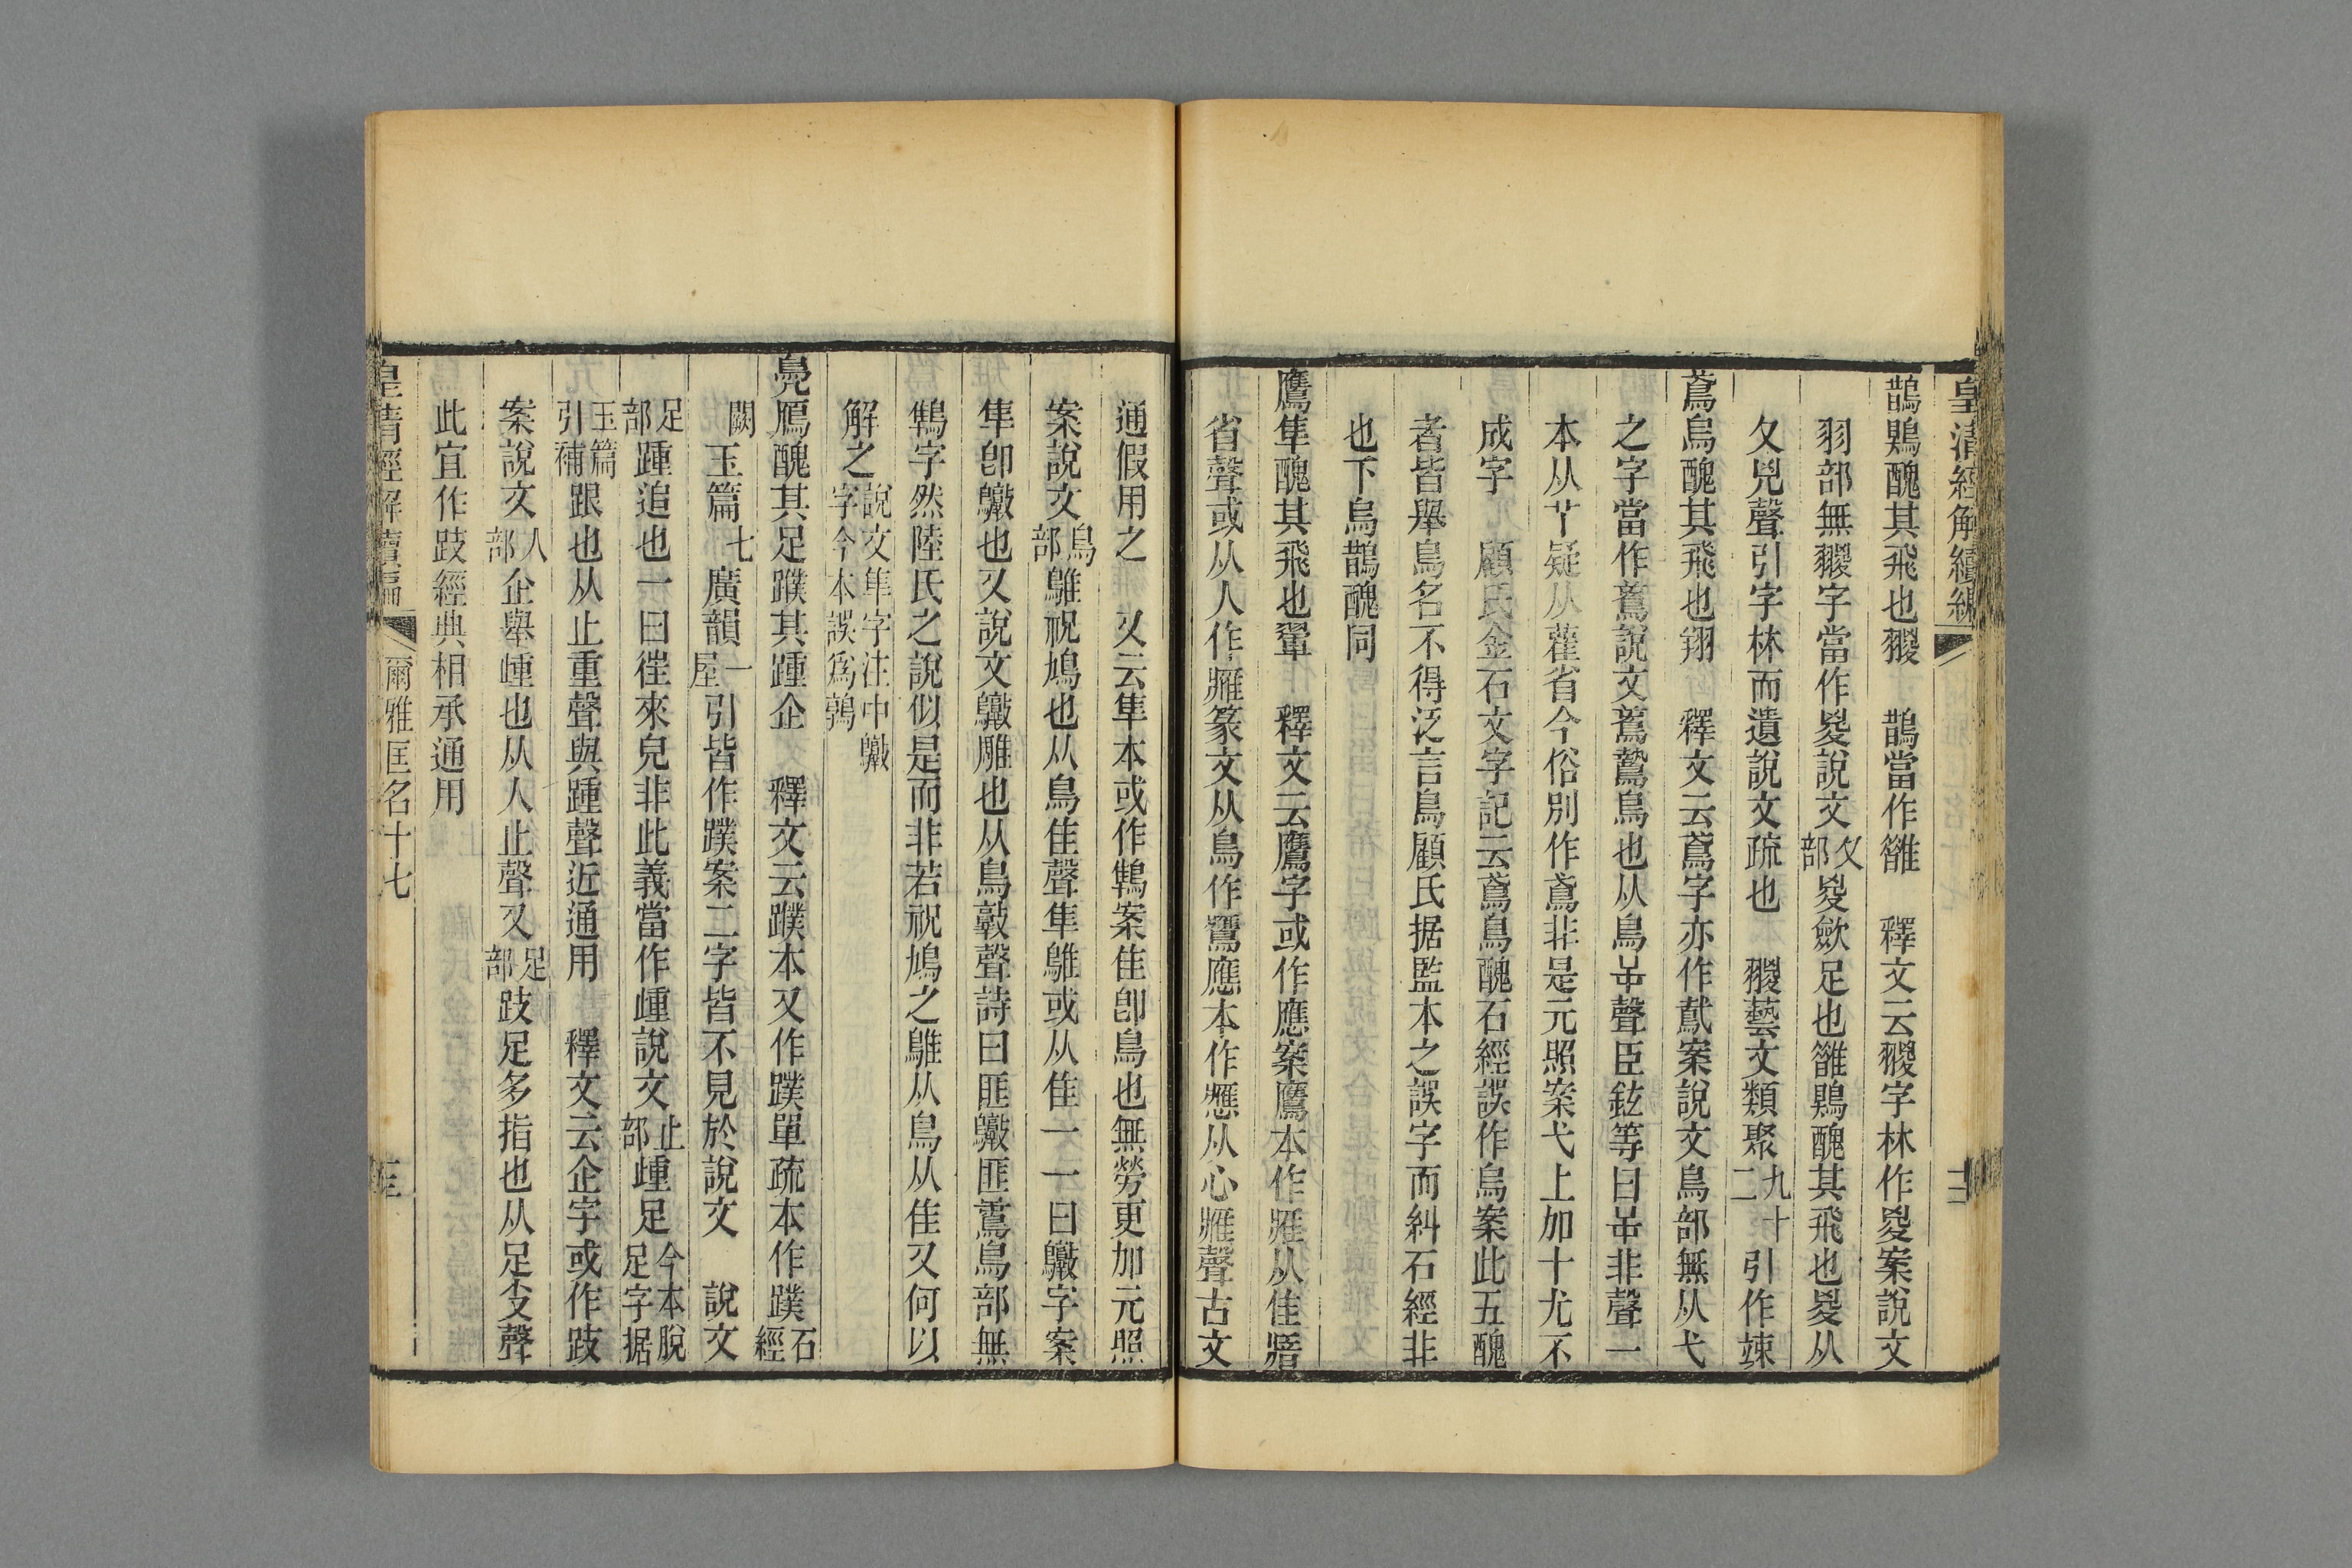 皇清經解續編
鵲鶪醜其飛也翪　鵲當作䧿　釋文云翪字林作㚇案說文
羽部無翪字當作㚇說文夊部㚇斂足也䧿鶪醜其飛也㚇从
夊兇聲引字林而遺說文疏也　翪藝文類聚九十二引作竦
鳶烏醜其飛也翔　釋文云鳶字亦作䳒案說文鳥部無从弋
之字當作䳸說文䳸鷙鳥也从鳥屰聲臣鉉等曰屰非聲一
本从𦫳疑从雚省今俗別作鳶非是元照案弋上加十尤不
成字　顧氏金石文字記云鳶烏醜石經誤作鳥案此五醜
者皆舉鳥名不得泛言鳥顧氏据監本之誤字而糾石經非
也下烏鵲醜同
鷹隼醜其飛也翬　釋文云鷹字或作應案鷹本作䧹从隹瘖
省聲或从人作䧹籀文从鳥作鷹應本作應从心䧹聲古文
通假用之　又云隼本或作鵻案隹卽鳥也無勞更加元照
案說文鳥部鵻祝鳩也从鳥隹聲隼鵻或从隹一一曰鷻字案
隼卽鷻也又說文鷻雕也从鳥敦聲詩曰匪鷻匪鳶鳥部無
鵻字然陸氏之說似是而非若祝鳩之鵻从鳥从隹又何以
解之說文隼字注中鷻字今本誤爲鶉
鳧鴈醜其足蹼其踵企　釋文云蹼本又作蹼單疏本作蹼石經
闕玉篇七廣韻一屋引皆作蹼案二字皆不見於說文　說文
足部踵追也一曰徃來皃非此義當作㣫說文止部㣫足今本脫足字据
玉篇引補跟也从止重聲與踵聲近通用　釋文云企字或作跂
案說文人部企舉㣫也从人止聲又足部跂足多指也从足支聲
此宜作跂經典相承通用
皇清經解續編　爾雅匡名十七